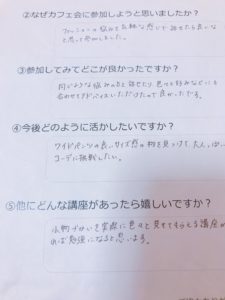 ②なぜカフェ会に参加しようと思いましたか?
ファッションの悩みを気軽な感じで話せたら良いな
と思って参加しました。
③参加してみてどこが良かったですか?
同じような悩みの方と話せたり 色々好みなどにも
合わせてアドバイスいただけたので良かったです。
④今後どのように活かしたいですか?
ワイドパンツの良いサイズ感の物を見つけて、大人っぽい
コーデに挑戦したい。
⑤他にどんな講座があったら嬉しいですか?
小物づかいを実際に色々と見せてもらえる講座が
あれば勉強になると思います。